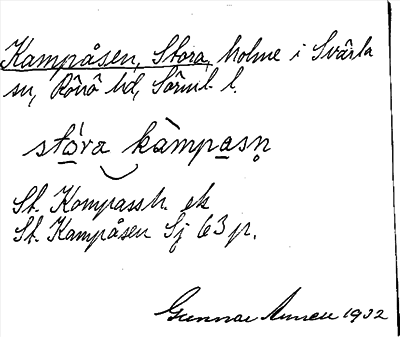 Kampåsen, Stora, holme i Svärta
sn, Rönö hd, Sörml. l.
stóra kàmpasn
St. Kompassh. ek
St. Kampåsen Sj 63 p.
Gunnar 1932